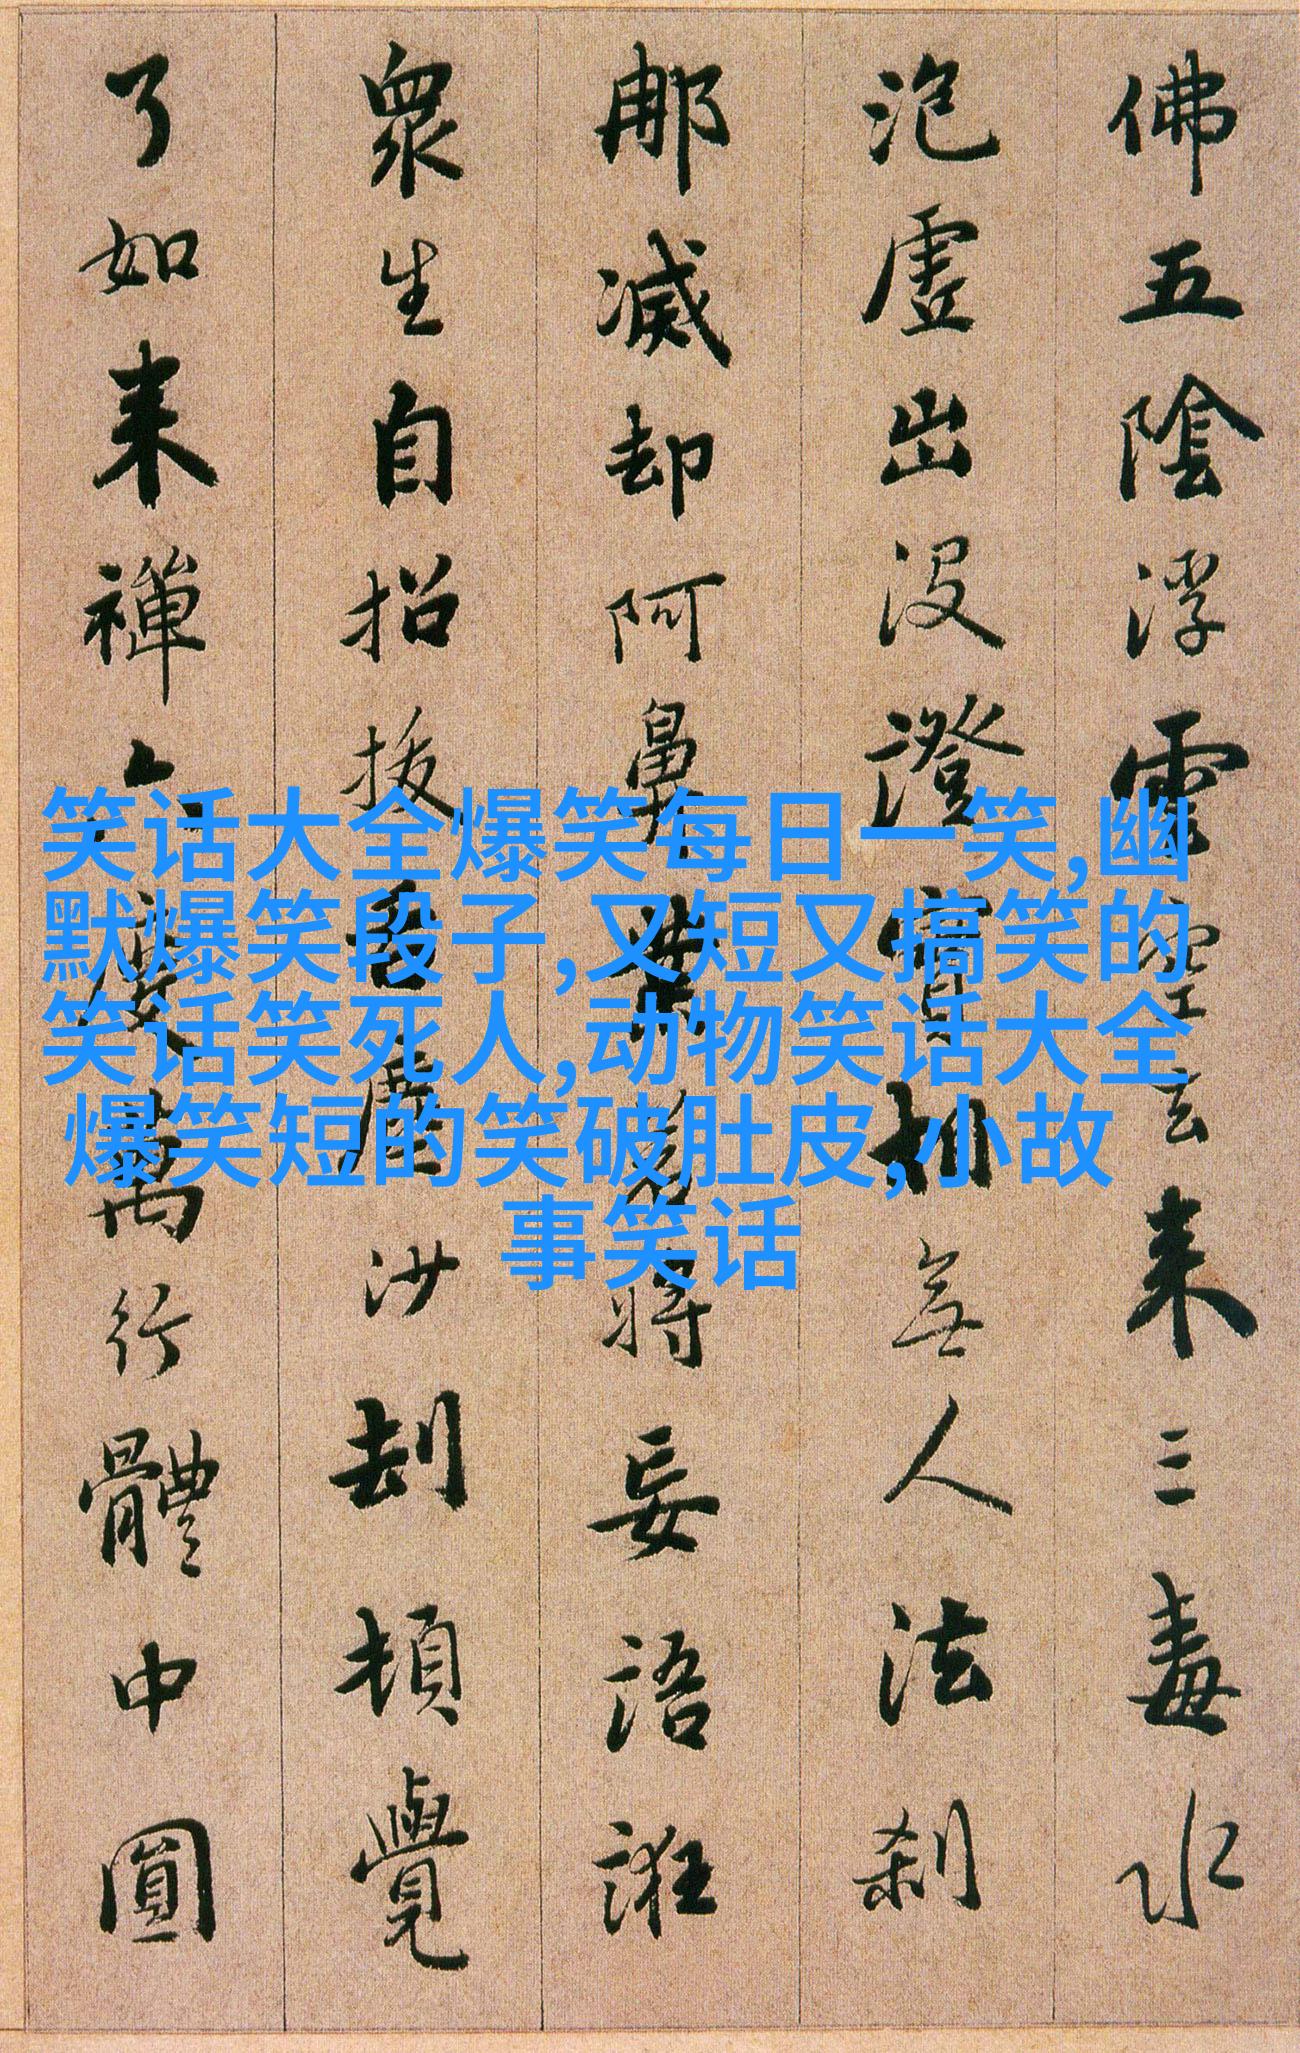 佛五陰浮雲空去来三毒水
泡虛出没證實相無人法刹
那滅却阿鼻業若將妄語誑
眾生自招拔舌塵沙劫頓覺
了如来禪六度萬行體中圓
笑话大全爆笑每日一笑,幽
默爆笑段子,又短又搞笑的
笑话笑死人,动物笑话大全
爆笑短的笑破肚皮,小故
事笑话